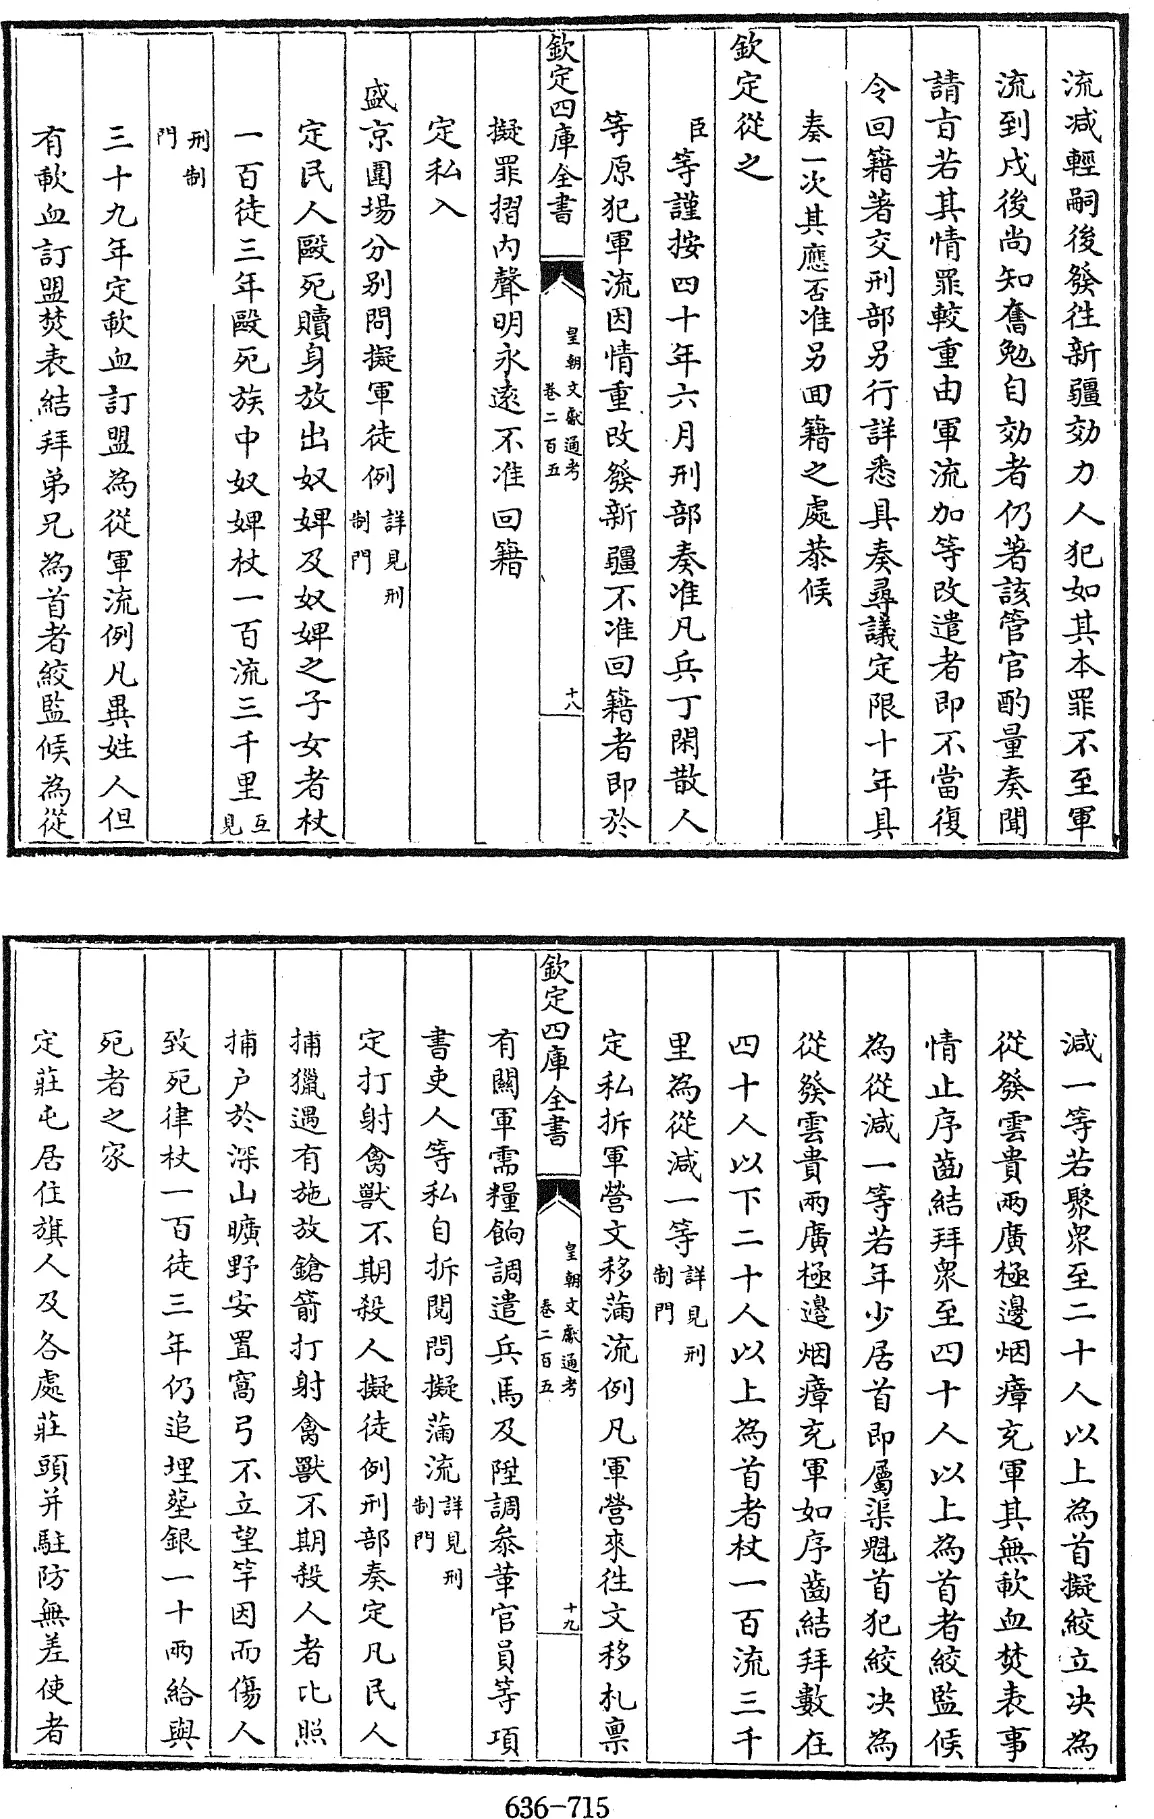 流減輕嗣後發往新疆効力人犯如其本罪不至軍
流到戍後尚知奮勉自効者仍著該管官酌量奏聞
請㫖若其情罪較重由軍流加等改遣者即不當復
令回籍著交刑部另行詳悉具奏尋議定限十年具
奏一次其應否准另回籍之處恭候
欽定從之
臣等謹按四十年六月刑部奏准凡兵丁閑散人
等原犯軍流因情重改發新疆不准回籍者即於
欽定四庫全書
皇朝文獻通考
卷二百五
十八
擬罪摺内聲明永逺不准回籍
定私入
盛京圍場分别問擬軍徒例詳見刑
制門
定民人毆死贖身放出奴婢及奴婢之子女者杖
一百徒三年毆死族中奴婢杖一百流三千里互
見
刑制
門
三十九年定歃血訂盟為從軍流例凡異姓人但
有歃血訂盟焚表結拜弟兄為首者絞監候為從
減一等若聚衆至二十人以上為首擬絞立決為
從發雲貴兩廣極邊烟瘴充軍其無歃血焚表事
情止序齒結拜衆至四十人以上為首者絞監候
為從減一等若年少居首即屬渠魁首犯絞决為
從發雲貴兩廣極邊烟瘴充軍如序齒結拜數在
四十人以下二十人以上為首者杖一百流三千
里為從減一等詳見刑
制門
定私拆軍營文移蒲流例凡軍營來往文移札禀
欽定四庫全書
皇朝文獻通考
卷二百五
十九
有關軍需糧餉調遣兵馬及陞調叅革官員等項
書吏人等私自拆閲問擬蒲流詳見刑
制門
定打射禽獸不期殺人擬徒例刑部奏定凡民人
捕獵遇有施放鎗箭打射禽獸不期殺人者比照
捕户於深山曠野安置窩弓不立望竿因而傷人
致死律杖一百徒三年仍追埋塟銀一十兩給與
死者之家
定莊屯居住旗人及各處莊頭并駐防無差使者
636-715